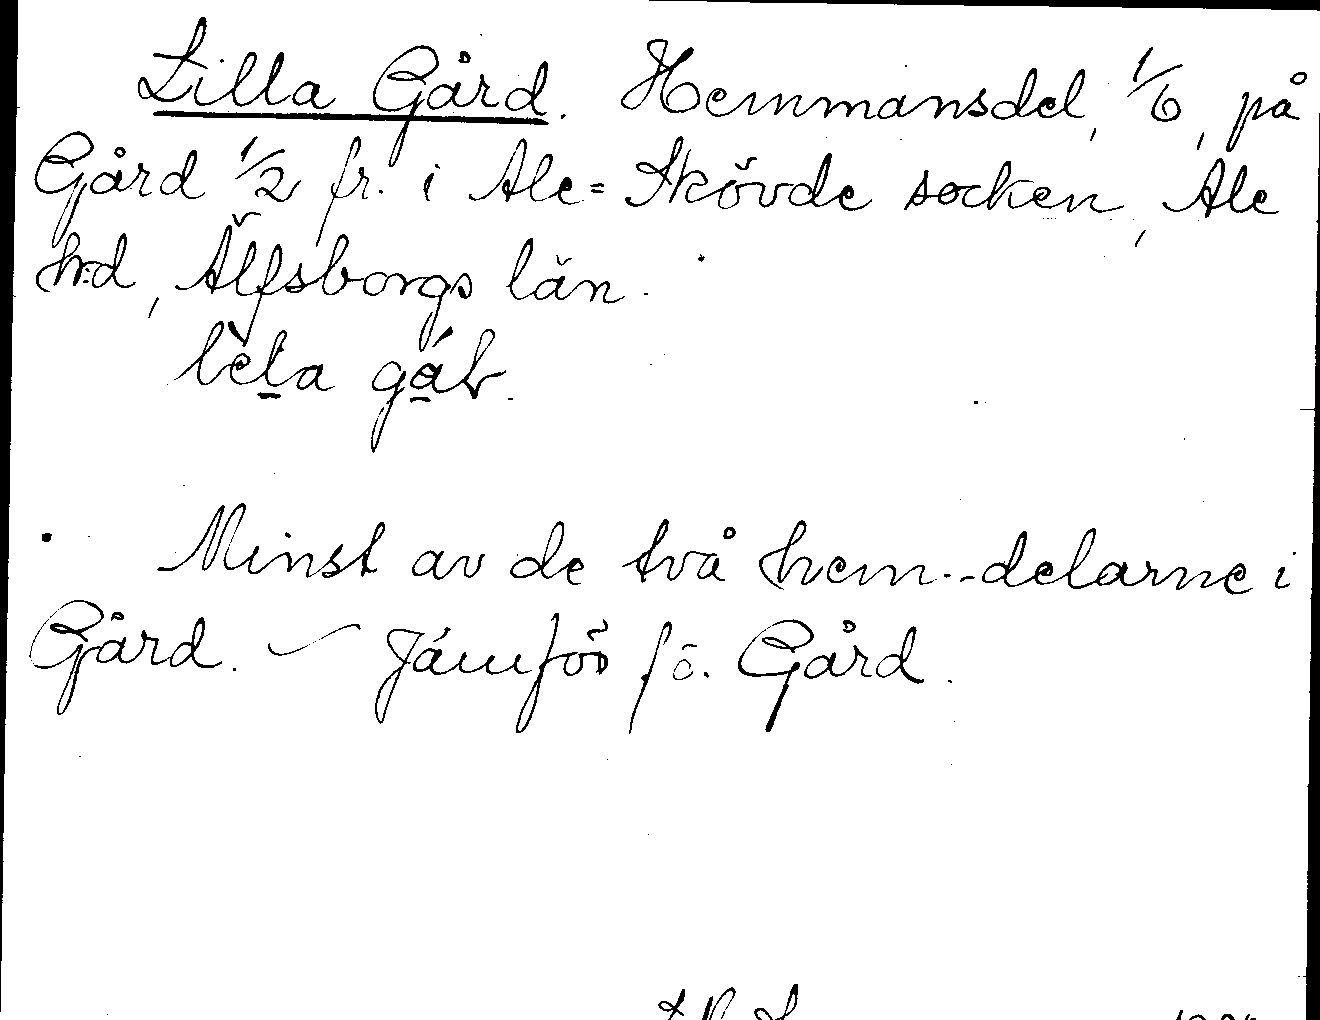 Lilla Gård. Hemmansdel, 1/6, på
Gård 1/2 fr. i Ale=Skövde socken, Ale
h:d, Älfsborgs län.
Minst av de två hem.-delarne i
Gård. – Jämför fö. Gård.